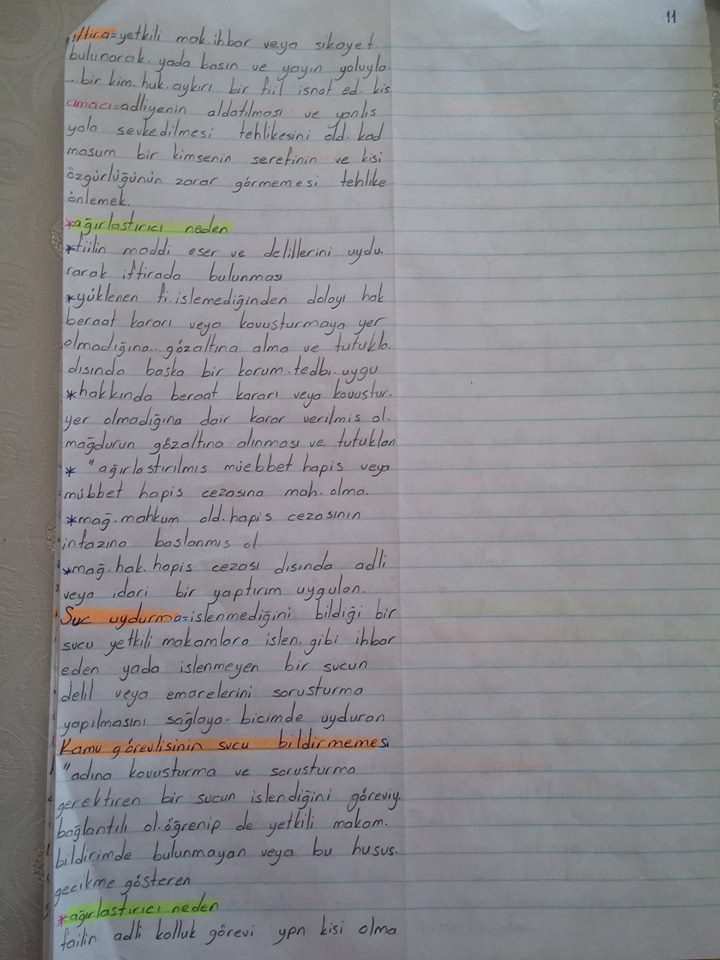 11
iftira=yetkili mak.ihbar veya sikayet
bulunarak yada basın ve yayın yoluyla
bir kim.huk.aykırı bir fiil isnat ed kis
amacı=adliyenin aldatılması ve yanlıs
yola sevkedilmesi tehlikesini old.kad
masum bir kimsenin serefinin ve kisi
özgürlüğünün zarar görmemesi tehlike
önlemek.
*ağırlastırıcı neden
*fiilin maddi eser ve delillerini uydu.
rarak iftirada bulunması
*yüklenen fi.islemediğinden dolayı hak
beraat kararı veya kovusturmaya yer
olmadığına.. gözaltına alma ve tutukla.
dısında baska bir korum.tedbı.uygu
*hakkında beraat kararı veya kovustur.
yer olmadığına dair karar verilmis ol.
mağdurun gözaltına alınması ve tutuklan
* "ağırlastırılmıs müebbet hapis veya
mübbet hapis cezasına mah.olma.
*mağ.mahkum old.hapis cezasının
infazına baslanmıs ol.
*mağ.hak.hapis cezası dısında adli
veya idari bir yaptırım uygulan.
Suc uydurma=islenmediğini bildiği bir
sucu yetkili makamlara islen.gibi ihbar
eden yada islenmeyen bir sucun
delil veya emarelerini sorusturma
yapılmasını sağlaya. bicimde uyduran
Kamu görevlisinin sucu bildirmemesi
"adına kovusturma ve sorusturma
gerektiren bir sucun islendiğini göreviy.
bağlantılı ol.öğrenip de yetkili makam.
bildirimde bulunmayan veya bu husus.
gecikme gösteren
*ağırlastırıcı neden
failin adli kolluk görevi ypn kisi olma